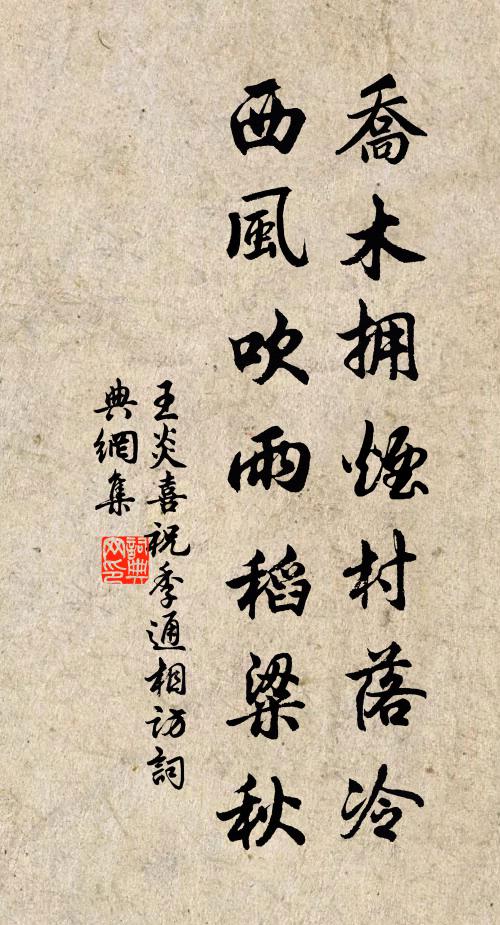 喬木拥煙村落冷
西風吹雨稻粱秋
王炎喜祝季通相访詞
典網集
詞典
网印